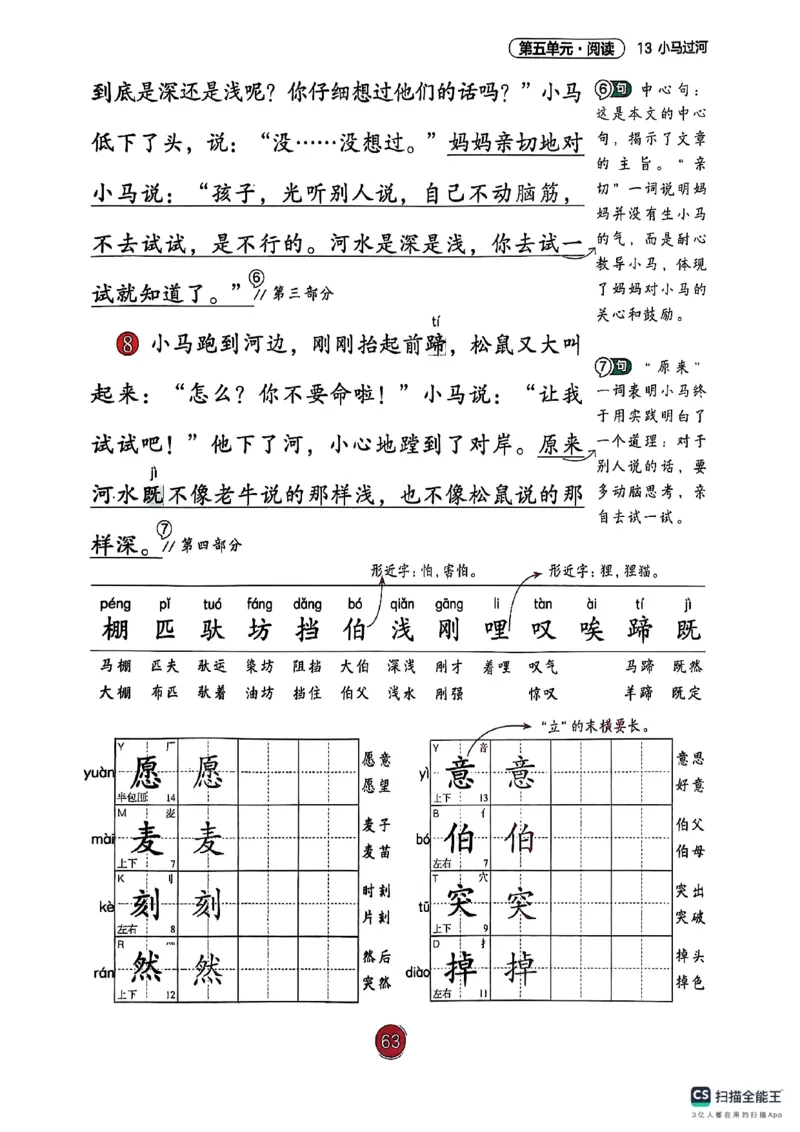 第五单元·阅读 13 小马过河
到底是深还是浅呢？你仔细想过他们的话吗？”小马
低下了头，说：“没……没想过。”妈妈亲切地对
小马说：“孩子，光听别人说，自己不动脑筋，
不去试试，是不行的。河水是深是浅，你去试一
试就知道了。”⑥//第三部分
tí
8 小马跑到河边，刚刚抬起前蹄，松鼠又大叫
起来：“怎么？你不要命啦！”小马说：“让我
试试吧！”他下了河，小心地蹚到了对岸。原来
jì
河水既不像老牛说的那样浅，也不像松鼠说的那
样深。⑦//第四部分
⑥句 中心句：
这是本文的中心
句，揭示了文章
的主旨。“亲
切”一词说明妈
妈并没有生小马
的气，而是耐心
教导小马，体现
了妈妈对小马的
关心和鼓励。
⑦句 “原来”
一词表明小马终
于用实践明白了
一个道理：对于
别人说的话，要
多动脑思考，亲
自去试一试。
形近字：怕，害怕。 形近字：狸，狸猫。
péng pǐ tuó fáng dǎng bó qiǎn gāng li tàn ài tí jì
棚 匹 驮 坊 挡 伯 浅 刚 哩 叹 唉 蹄 既
马棚 匹夫 驮运 染坊 阻挡 大伯 深浅 刚才 着哩 叹气 马蹄 既然
大棚 布匹 驮着 油坊 挡住 伯父 浅水 刚强 惊叹 羊蹄 既定
“立”的末横要长。
Y 厂
yuàn 愿 愿
半包围 14
愿意
愿望
M 麦
mài 麦 麦
上下 7
麦子
麦苗
K 刂
kè 刻 刻
左右 8
时刻
片刻
R 灬
rán 然 然
上下 12
然后
突然
Y 音
yì 意 意
上下 13
意思
好意
B 亻
bó 伯 伯
左右 7
伯父
伯母
T 穴
tū 突 突
上下 9
突出
突破
D 扌
diào 掉 掉
左右 11
掉头
掉色
63
CS 扫描全能王
3亿人都在用的扫描App